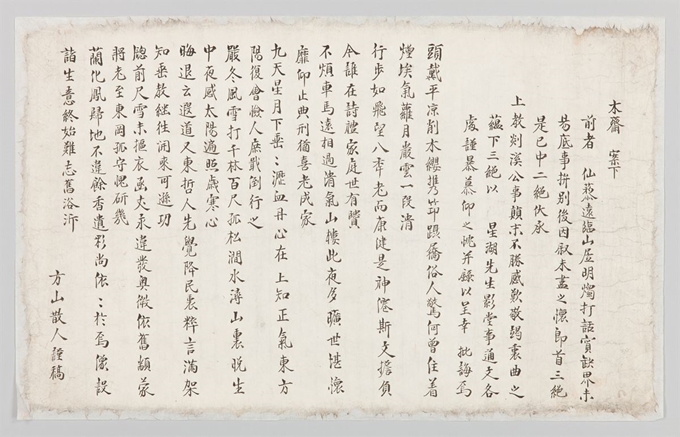 木齋 案下
前者 仙藜遠臨山居明燭打話實訣界未
易底事拚別後因叙未盡之懷郎首三絶
是已中二絶伏承
上教剡溪公事顛末不勝感歎敬竭衷曲之
蘊下三絶以 星湖先生影堂事通文各
處謹暴慕仰之忱并錄以呈幸 批誨焉
頭戴平凉削木纓携筇躡僑俗人驚何曾住着
煙埃氣蘿月巖雲一段清
行步如飛望八秊老而康健是神僊斯文擔負
今誰在詩禮家庭世有賢
不煩車馬遠相過清氣山樓此夜多曠世堪懷
靡仰止典刑猶喜老成家
九天星月下垂垂灑血丹心在 上知正氣東方
陽復會恰人糜戮倒行之
嚴冬風雪打千林百尺孤松澗水潯山裏晩生
中夜感太陽遍照歲寒心
晦退云遐道又東哲人先覺降民衷粹言滿架
知垂教継往開來可遜功
牕前尺雪未摳衣函丈承違發奧微依舊顓蒙
將老至東岡孤守愧研幾
蘭化鳳歸地不逢餘香遺彩尚依依於焉像設
諧生意終始難忘舊浴沂
方山散人謹稿